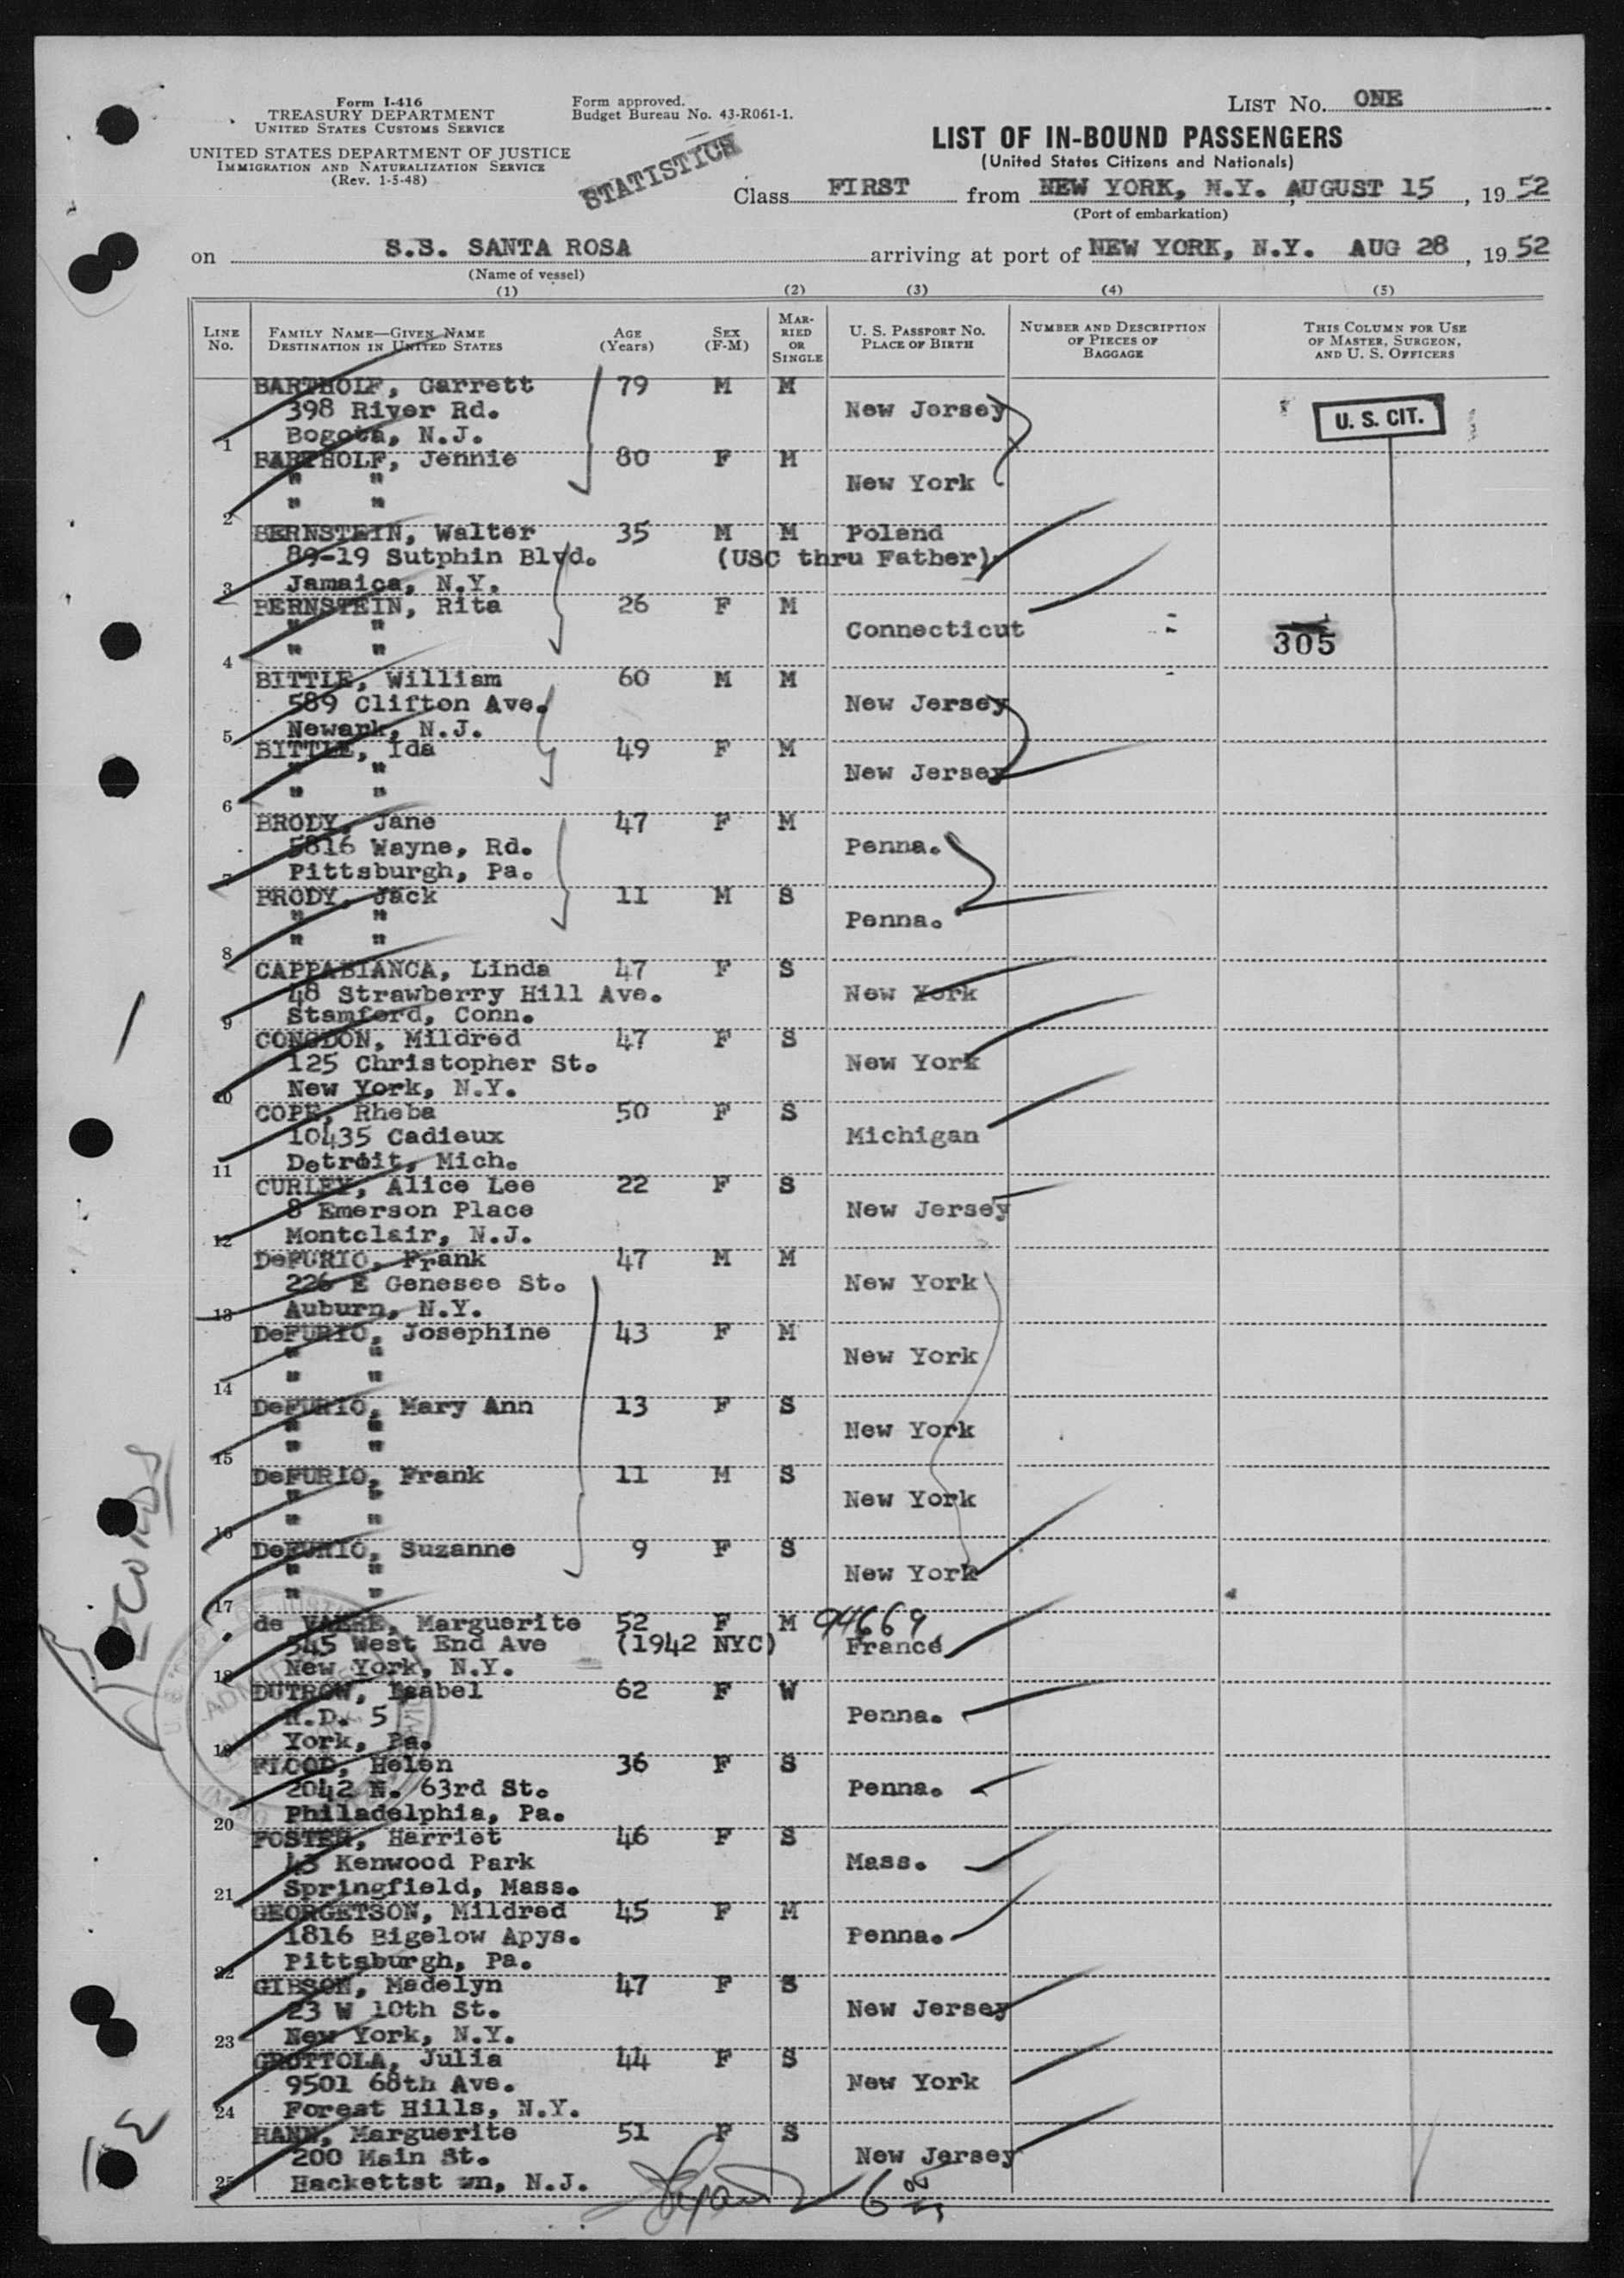 Form I-416
TREASURY DEPARTMENT
UNITED STATES CUSTOMS SERVICE
UNITED STATES DEPARTMENT OF JUSTICE
IMMIGRATION AND NATURALIZATION SERVICE
(Rev. 1-5-48)
Form approved.
Budget Bureau No. 43-R061-1.
STATISTICS
LIST No. ONE
LIST OF IN-BOUND PASSENGERS
(United States Citizens and Nationals)
Class FIRST from NEW YORK, N.Y., AUGUST 15, 1952
(Port of embarkation)
on S.S. SANTA ROSA arriving at port of NEW YORK, N.Y. AUG 28, 1952
(Name of vessel)
(1) (2) (3) (4) (5)
LINE No. FAMILY NAME—GIVEN NAME DESTINATION IN UNITED STATES AGE (Years) SEX (F-M) MARRIED OR SINGLE U. S. PASSPORT NO. PLACE OF BIRTH NUMBER AND DESCRIPTION OF PIECES OF BAGGAGE THIS COLUMN FOR USE OF MASTER, SURGEON, AND U. S. OFFICERS
BARTHOLF, Garrett 79 M M
398 River Rd. New Jersey U. S. CIT.
1 Bogota, N.J.
BARTHOLF, Jennie 80 F M
" " New York
2 " "
BERNSTEIN, Walter 35 M M Poland
89-19 Sutphin Blvd. (USC thru Father)
3 Jamaica, N.Y.
BERNSTEIN, Rita 26 F M
" " Connecticut 305
4 " "
BITTLE, William 60 M M
589 Clifton Ave. New Jersey
5 Newark, N.J.
BITTLE, Ida 49 F M
" " New Jersey
6 " "
BRODY, Jane 47 F M
5816 Wayne, Rd. Penna.
7 Pittsburgh, Pa.
BRODY, Jack 11 M S
" " Penna.
8 " "
CAPPABIANCA, Linda 47 F S
48 Strawberry Hill Ave. New York
9 Stamford, Conn.
CONGDON, Mildred 47 F S
125 Christopher St. New York
10 New York, N.Y.
COPE, Rheba 50 F S
10435 Cadieux Michigan
11 Detroit, Mich.
CURLEY, Alice Lee 22 F S
8 Emerson Place New Jersey
12 Montclair, N.J.
DeFURIO, Frank 47 M M
226 E Genesee St. New York
13 Auburn, N.Y.
DeFURIO, Josephine 43 F M
" " New York
14 " "
DeFURIO, Mary Ann 13 F S
" " New York
15 " "
DeFURIO, Frank 11 M S
" " New York
16 " "
DeFURIO, Suzanne 9 F S
" " New York
17 " "
de Marguerite 52 F M 94669
545 West End Ave (1942 NYC) France
18 New York, N.Y.
DUTROW, Isabel 62 F W
R.D. 5 Penna.
19 York, Pa.
FLOOD, Helen 36 F S
2042 N. 63rd St. Penna.
20 Philadelphia, Pa.
FOSTER, Harriet 46 F S
43 Kenwood Park Mass.
21 Springfield, Mass.
GEORGETSON, Mildred 45 F M
1816 Bigelow Apys. Penna.
22 Pittsburgh, Pa.
GIBSON, Madelyn 47 F S
23 W 10th St. New Jersey
23 New York, N.Y.
GROTTOLA, Julia 44 F S
9501 68th Ave. New York
24 Forest Hills, N.Y.
HANN, Marguerite 51 F S
200 Main St. New Jersey
25 Hackettst wn, N.J.